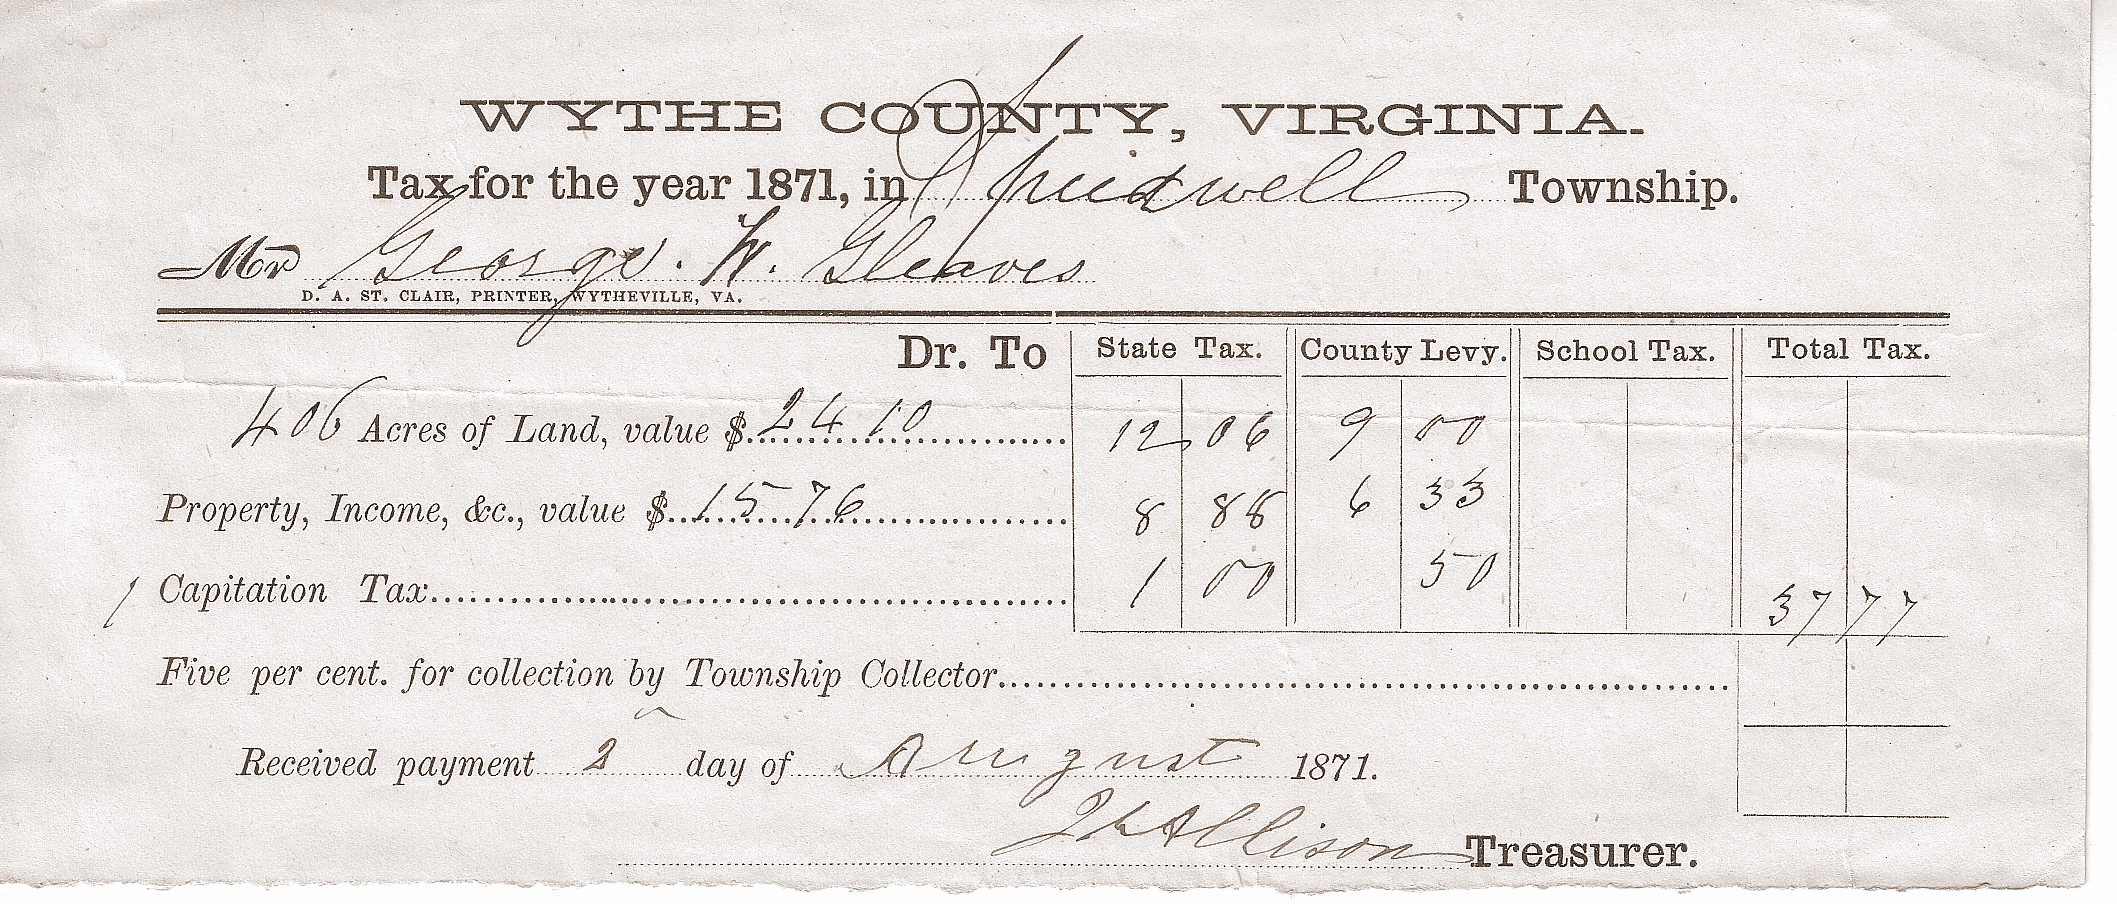 WYTHE COUNTY, VIRGINIA.
Tax for the year 1871, in Speedwell Township.
Mr George. W. Gleaves
D. A. ST. CLAIR, PRINTER, WYTHEVILLE, VA.
Dr. To State Tax. County Levy. School Tax. Total Tax.
406 Acres of Land, value $ 2410 12 06 9 00
Property, Income, &c., value $ 1576 8 88 6 33
1 Capitation Tax 1 00 50 37 77
Five per cent. for collection by Township Collector
Received payment 2 day of August 1871.
Allison Treasurer.